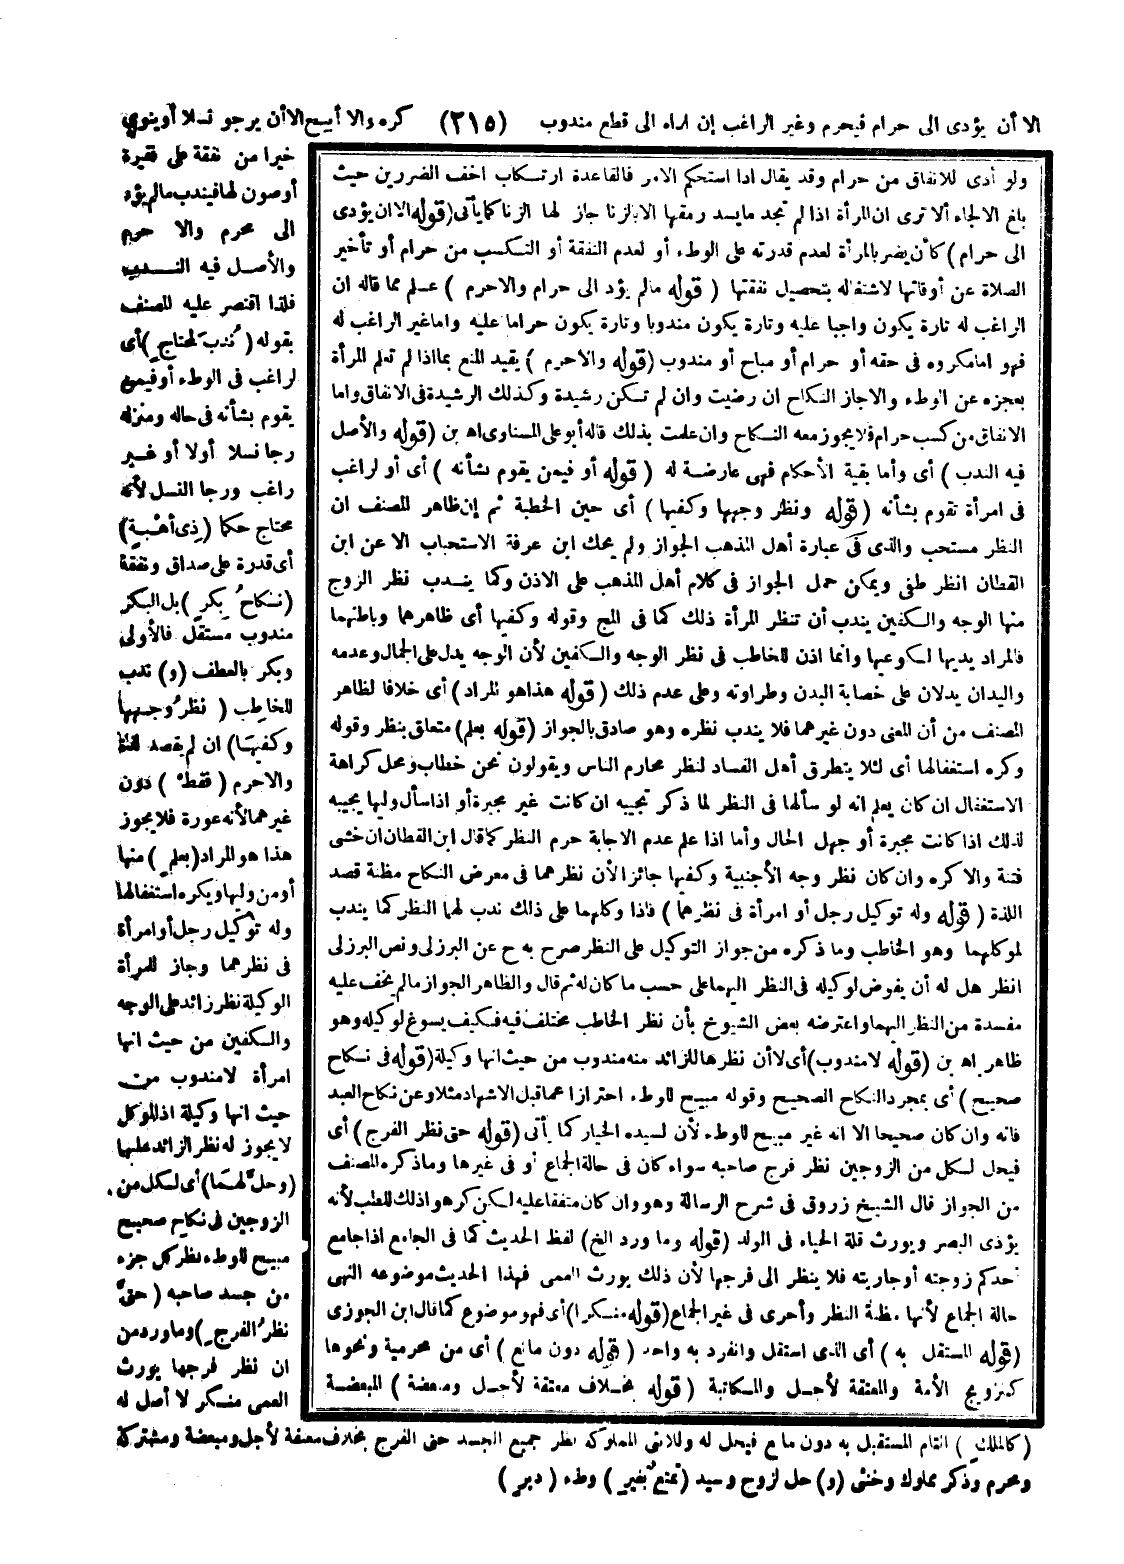 الا أن يؤدى الى حرام فيحرم وغير الراغب إن أداه الى قطع مندوب (٢١٥) كره والا أبيح الا أن يرجو نسلا أو ينوي
خيرا من نفقة على فقيرة
أو صون لها فيندب مالم يؤد
الى محرم والا حرم
والأصل فيه الندب
فلذا اقتصر عليه المصنف
بقوله (نُدبَ لمحتاجٍ) أى
لراغب فى الوطء أو فيمن
يقوم بشأنه فى حاله ومنزله
رجا نسلا أولا أو غير
راغب ورجا النسل لأنه
محتاج حكما (ذِى أُهْبةٍ)
أى قدرة على صداق ونفقة
(نكاحُ بِكرٍ) بل البكر
مندوب مستقل فالأولى
وبكر بالعطف (و) ندب
للخاطِب (نظرُ وجهِها
وكفيهَا) ان لم يقصد لذة
والاحرم (فقطْ) دون
غيرهما لأنه عورة فلا يجوز
هذا هو المراد (بعلمٍ) منها
أو من وليها ويكره استغفالها
وله توكيل رجل أو امرأة
فى نظرهما وجاز للمرأة
الوكيلة نظر زائد على الوجه
والكفين من حيث انها
امرأة لا مندوب من
حيث انها وكيلة اذ الموكل
لا يجوز له نظر الزائد عليها
(وحلَّ لهمَا) أى لكل من
الزوجين فى نكاح صحيح
مبيح للوطء نظر كل جزء
من جسد صاحبه (حتَّى
نظرُ الفرجِ) وما ورد من
ان نظر فرجها يورث
العمى منكر لا أصل له
ولو أدى للانفاق من حرام وقد يقال اذا استحكم الامر فالقاعدة ارتكاب اخف الضررين حيث
بلغ الالجاء ألا ترى ان المرأة اذا لم تجد مايسد رمقها الا بالزنا جاز لها الزنا كما يأتى (قوله الا ان يؤدى
الى حرام) كأن يضر بالمرأة لعدم قدرته على الوطء أو لعدم النفقة أو التكسب من حرام أو تأخير
الصلاة عن أوقاتها لاشتغاله بتحصيل نفقتها (قوله مالم يؤد الى حرام والاحرم) علم مما قاله ان
الراغب له تارة يكون واجبا عليه وتارة يكون مندوبا وتارة يكون حراما عليه واما غير الراغب له
فهو اما مكروه فى حقه أو حرام أو مباح أو مندوب (قوله والاحرم) يقيد المنع بما اذا لم تعلم المرأة
بعجزه عن الوطء والاجاز النكاح ان رضيت وان لم تكن رشيدة وكذلك الرشيدة فى الانفاق واما
الانفاق من كسب حرام فلا يجوز معه النكاح وان علمت بذلك قاله أبو على المسناوى اهـ بن (قوله والأصل
فيه الندب) أى وأما بقية الأحكام فهى عارضة له (قوله أو فيمن يقوم بشأنه) أى أو لراغب
فى امرأة تقوم بشأنه (قوله ونظر وجهها وكفيها) أى حين الخطبة ثم إن ظاهر المصنف ان
النظر مستحب والذى فى عبارة أهل المذهب الجواز ولم يحك ابن عرفة الاستحباب الا عن ابن
القطان انظر طفى ويمكن حمل الجواز فى كلام أهل المذهب على الاذن وكما يندب نظر الزوج
منها الوجه والكفين يندب أن تنظر المرأة ذلك كما فى المج وقوله وكفيها أى ظاهرهما وباطنهما
فالمراد يديها لكوعيها وانما اذن للخاطب فى نظر الوجه والكفين لأن الوجه يدل على الجمال وعدمه
واليدان يدلان على خصابة البدن وطراوته وعلى عدم ذلك (قوله هذا هو المراد) أى خلافا لظاهر
المصنف من أن المعنى دون غيرهما فلا يندب نظره وهو صادق بالجواز (قوله بعلم) متعلق بنظر وقوله
وكره استغفالها أى لئلا يتطرق أهل الفساد لنظر محارم الناس ويقولون نحن خطاب ومحل كراهة
الاستغفال ان كان يعلم انه لو سألها فى النظر لما ذكر تجيبه ان كانت غير مجبرة أو اذا سأل وليها يجيبه
لذلك اذا كانت مجبرة أو جهل الحال وأما اذا علم عدم الاجابة حرم النظر كما قال ابن القطان ان خشى
فتنة والا كره وان كان نظر وجه الأجنبية وكفيها جائز الأن نظرهما فى معرض النكاح مظنة قصد
اللذة (قوله وله توكيل رجل أو امرأة فى نظرهما) فاذا وكلهما على ذلك ندب لهما النظر كما يندب
لموكلهما وهو الخاطب وما ذكره من جواز التوكيل على النظر صرح به ح عن البرزلى ونص البرزلى
انظر هل له أن يفوض لوكيله فى النظر اليهما على حسب ما كان له ثم قال والظاهر الجواز مالم يخف عليه
مفسدة من النظر اليهما واعترضه بعض الشيوخ بأن نظر الخاطب مختلف فيه فكيف يسوغ لوكيله وهو
ظاهر اهـ بن (قوله لا مندوب) أى لا أن نظرها للزائد منه مندوب من حيث انها وكيلة (قوله فى نكاح
صحيح) أى بمجرد النكاح الصحيح وقوله مبيح للوطء احترازا عما قبل الاشهاد مثلا وعن نكاح العبد
فانه وان كان صحيحا الا انه غير مبيح للوطء لأن لسيده الخيار كما يأتى (قوله حتى نظر الفرج) أى
فيحل لكل من الزوجين نظر فرج صاحبه سواء كان فى حالة الجماع أو فى غيرها وما ذكره المصنف
من الجواز قال الشيخ زروق فى شرح الرسالة وهو وان كان متفقا عليه لكن كرهوا ذلك للطب لأنه
يؤذى البصر ويورث قلة الحياء فى الولد (قوله وما ورد الخ) لفظ الحديث كما فى الجامع اذا جامع
أحدكم زوجته أو جاريته فلا ينظر الى فرجها لأن ذلك يورث العمى فهذا الحديث موضوعه النهى
حالة الجماع لأنها مظنة النظر وأحرى فى غير الجماع (قوله منكر) أى فهو موضوع كما قال ابن الجوزى
(قوله المستقل به) أى الذى استقل وانفرد به واحد (قوله دون مانع) أى من محرمية ونحوها
كتزويج الأمة والمعتقة لأجل والمكاتبة (قوله بخلاف معتقة لأجل ومبعضة) المبعضة
(كالملكِ) التام المستقبل به دون مانع فيحل له وللانثى المملوكة نظر جميع الجسد حتى الفرج بخلاف معتقة لأجل ومبعضة ومشتركة
ومحرم وذكر مملوك وخنثى (و) حل لزوج وسيد (تمتعٌ بغيرِ) وطء (دبرٍ)